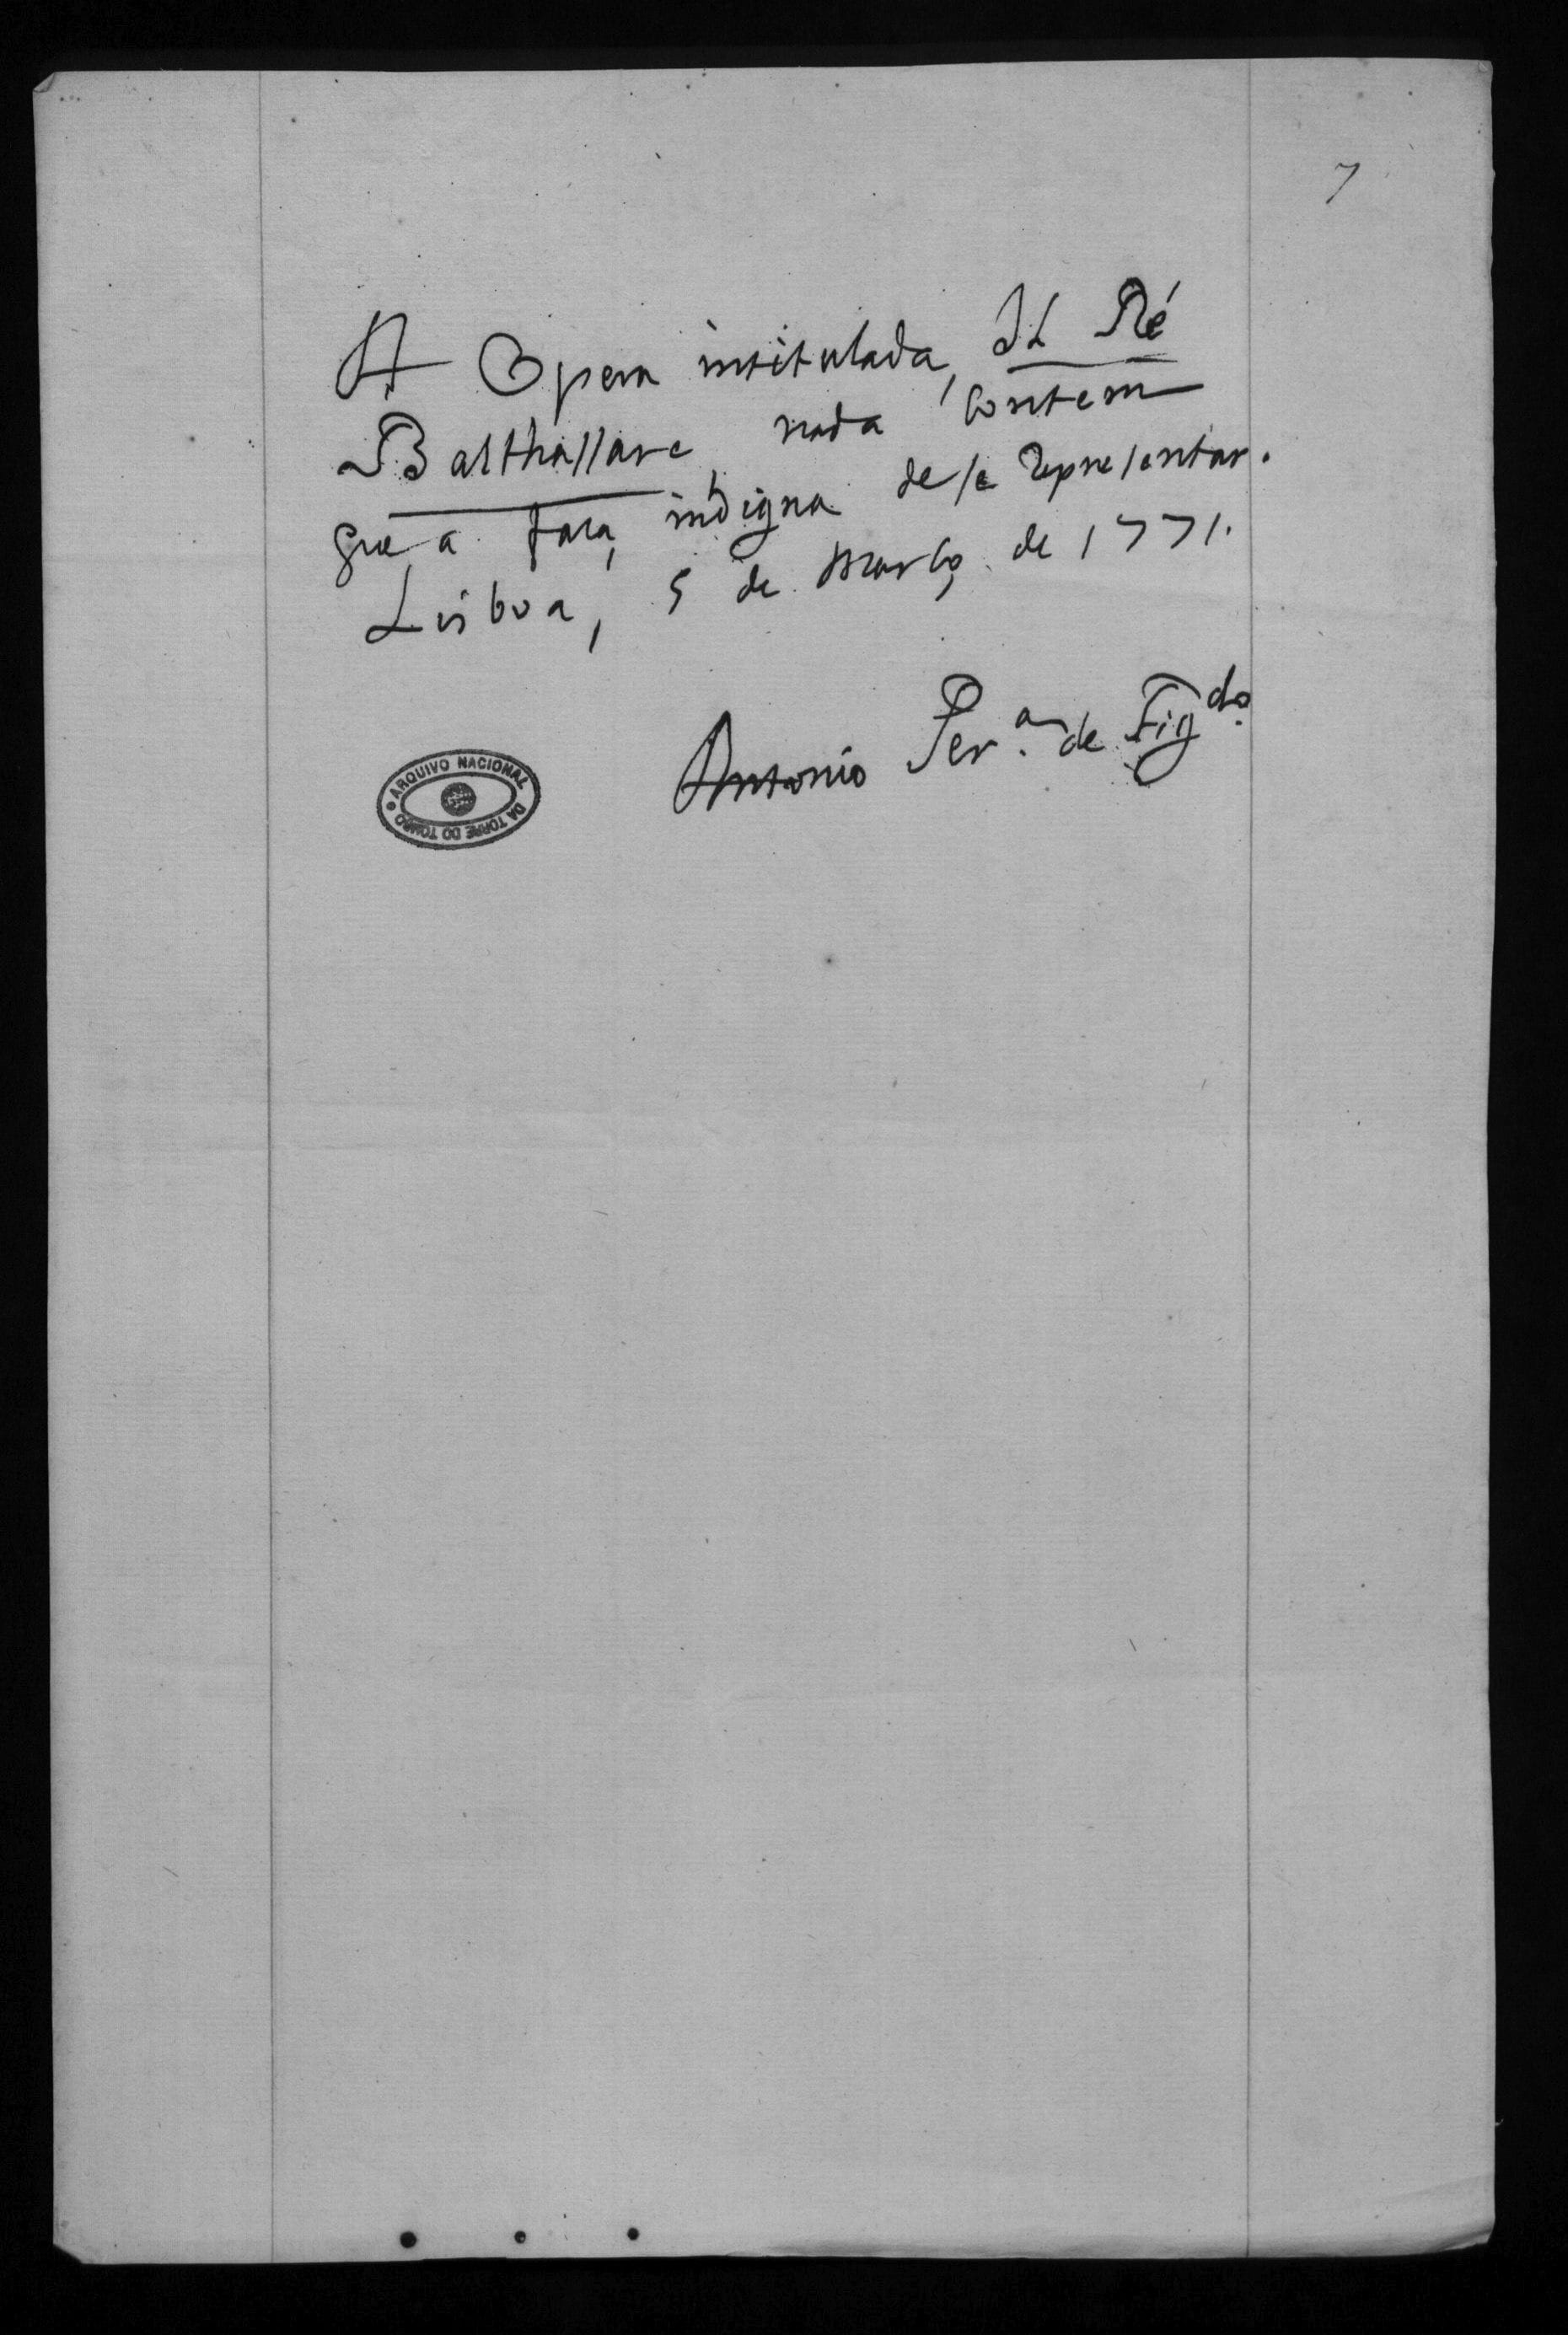 7
A Opera intitulada, Il Ré
Balthassare, nada contem
que a faça indigna de se representar.
Lisboa, 5 de Março de 1771.
Antonio Per.ª de Fig.do
ARQUIVO NACIONAL DA TORRE DO TOMBO